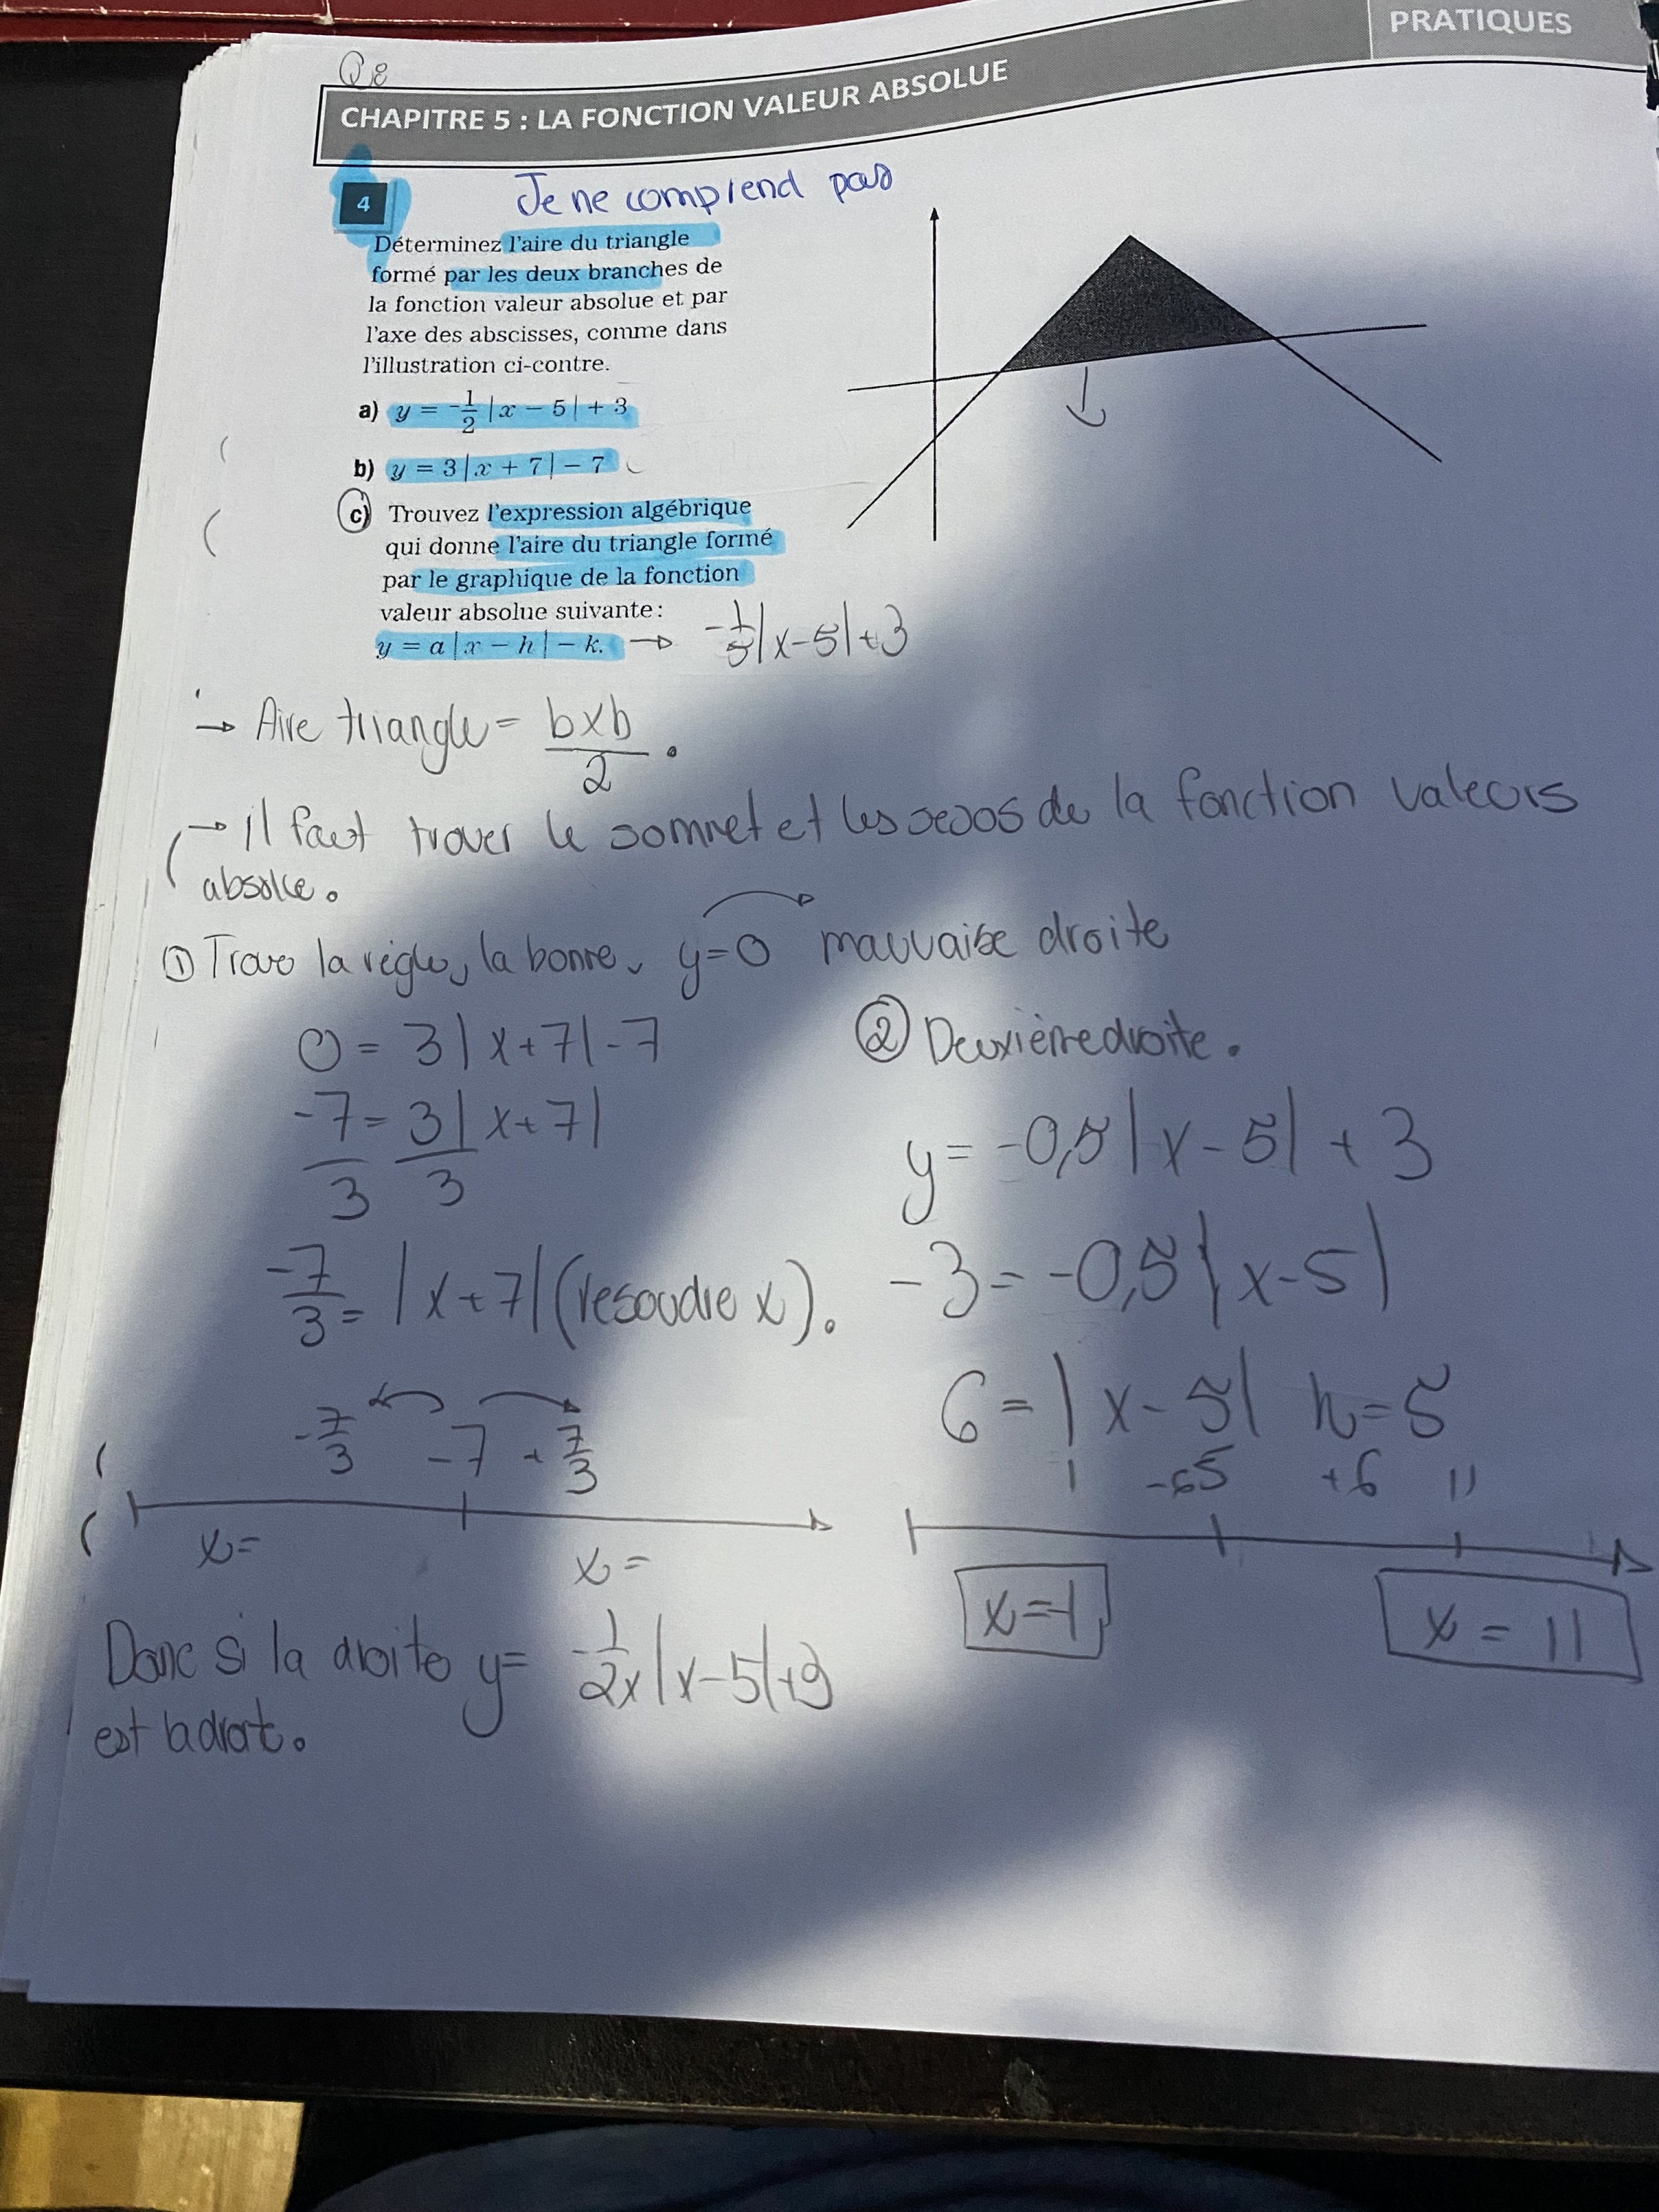 PRATIQUES
Q8
CHAPITRE 5 : LA FONCTION VALEUR ABSOLUE
4
Je ne comprend pas
Déterminez l'aire du triangle
formé par les deux branches de
la fonction valeur absolue et par
l'axe des abscisses, comme dans
l'illustration ci-contre.
a) y = -1/2 |x − 5| + 3
b) y = 3|x + 7| − 7
c) Trouvez l'expression algébrique
qui donne l'aire du triangle formé
par le graphique de la fonction
valeur absolue suivante :
y = a|x − h| − k. → -1/5|x-5|+3
→ Aire triangle = bxb/2.
→ il faut trover le sommet et les de la fonction valeurs
absolue.
① la règle, la bonne, y=0 mauvaise droite
0 = 3|x+7|-7
-7/3 = 3|x+7|/3
-7/3 = |x+7| (resoudre x).
-7/3 -7 +7/3
x=
x=
② Deuxième droite.
y = -0,5|x-5|+3
-3 = -0,5|x-5|
6 = |x-5| h=5
1 -6 5 +6 11
x=-1
x = 11
Donc si la droite y= -1/2x|x-5|+3
est